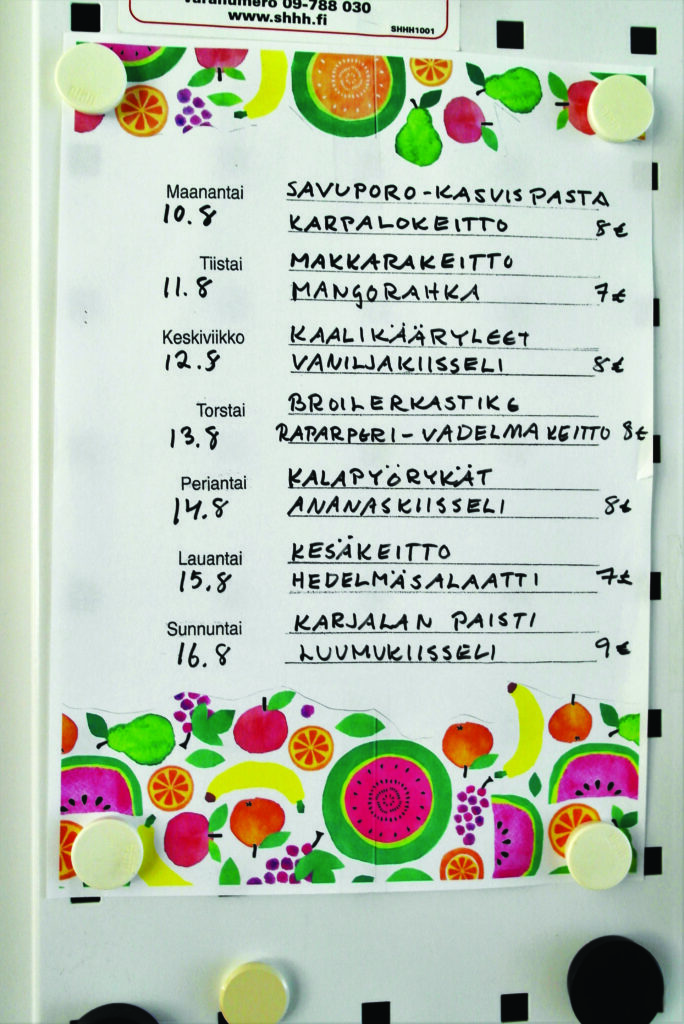 varanumero 09-788 030
www.shhh.fi
SHHH1001
Maanantai SAVUPORO-KASVISPASTA
10.8 KARPALOKEITTO 8€
Tiistai MAKKARAKEITTO
11.8 MANGORAHKA 7€
Keskiviikko KAALIKÄÄRYLEET
12.8 VANILJAKIISSELI 8€
Torstai BROILERKASTIKE
13.8 RAPARPERI-VADELMAKEITTO 8€
Perjantai KALAPYÖRYKÄT
14.8 ANANASKIISSELI 8€
Lauantai KESÄKEITTO
15.8 HEDELMÄSALAATTI 7€
Sunnuntai KARJALAN PAISTI
16.8 LUUMUKIISSELI 9€